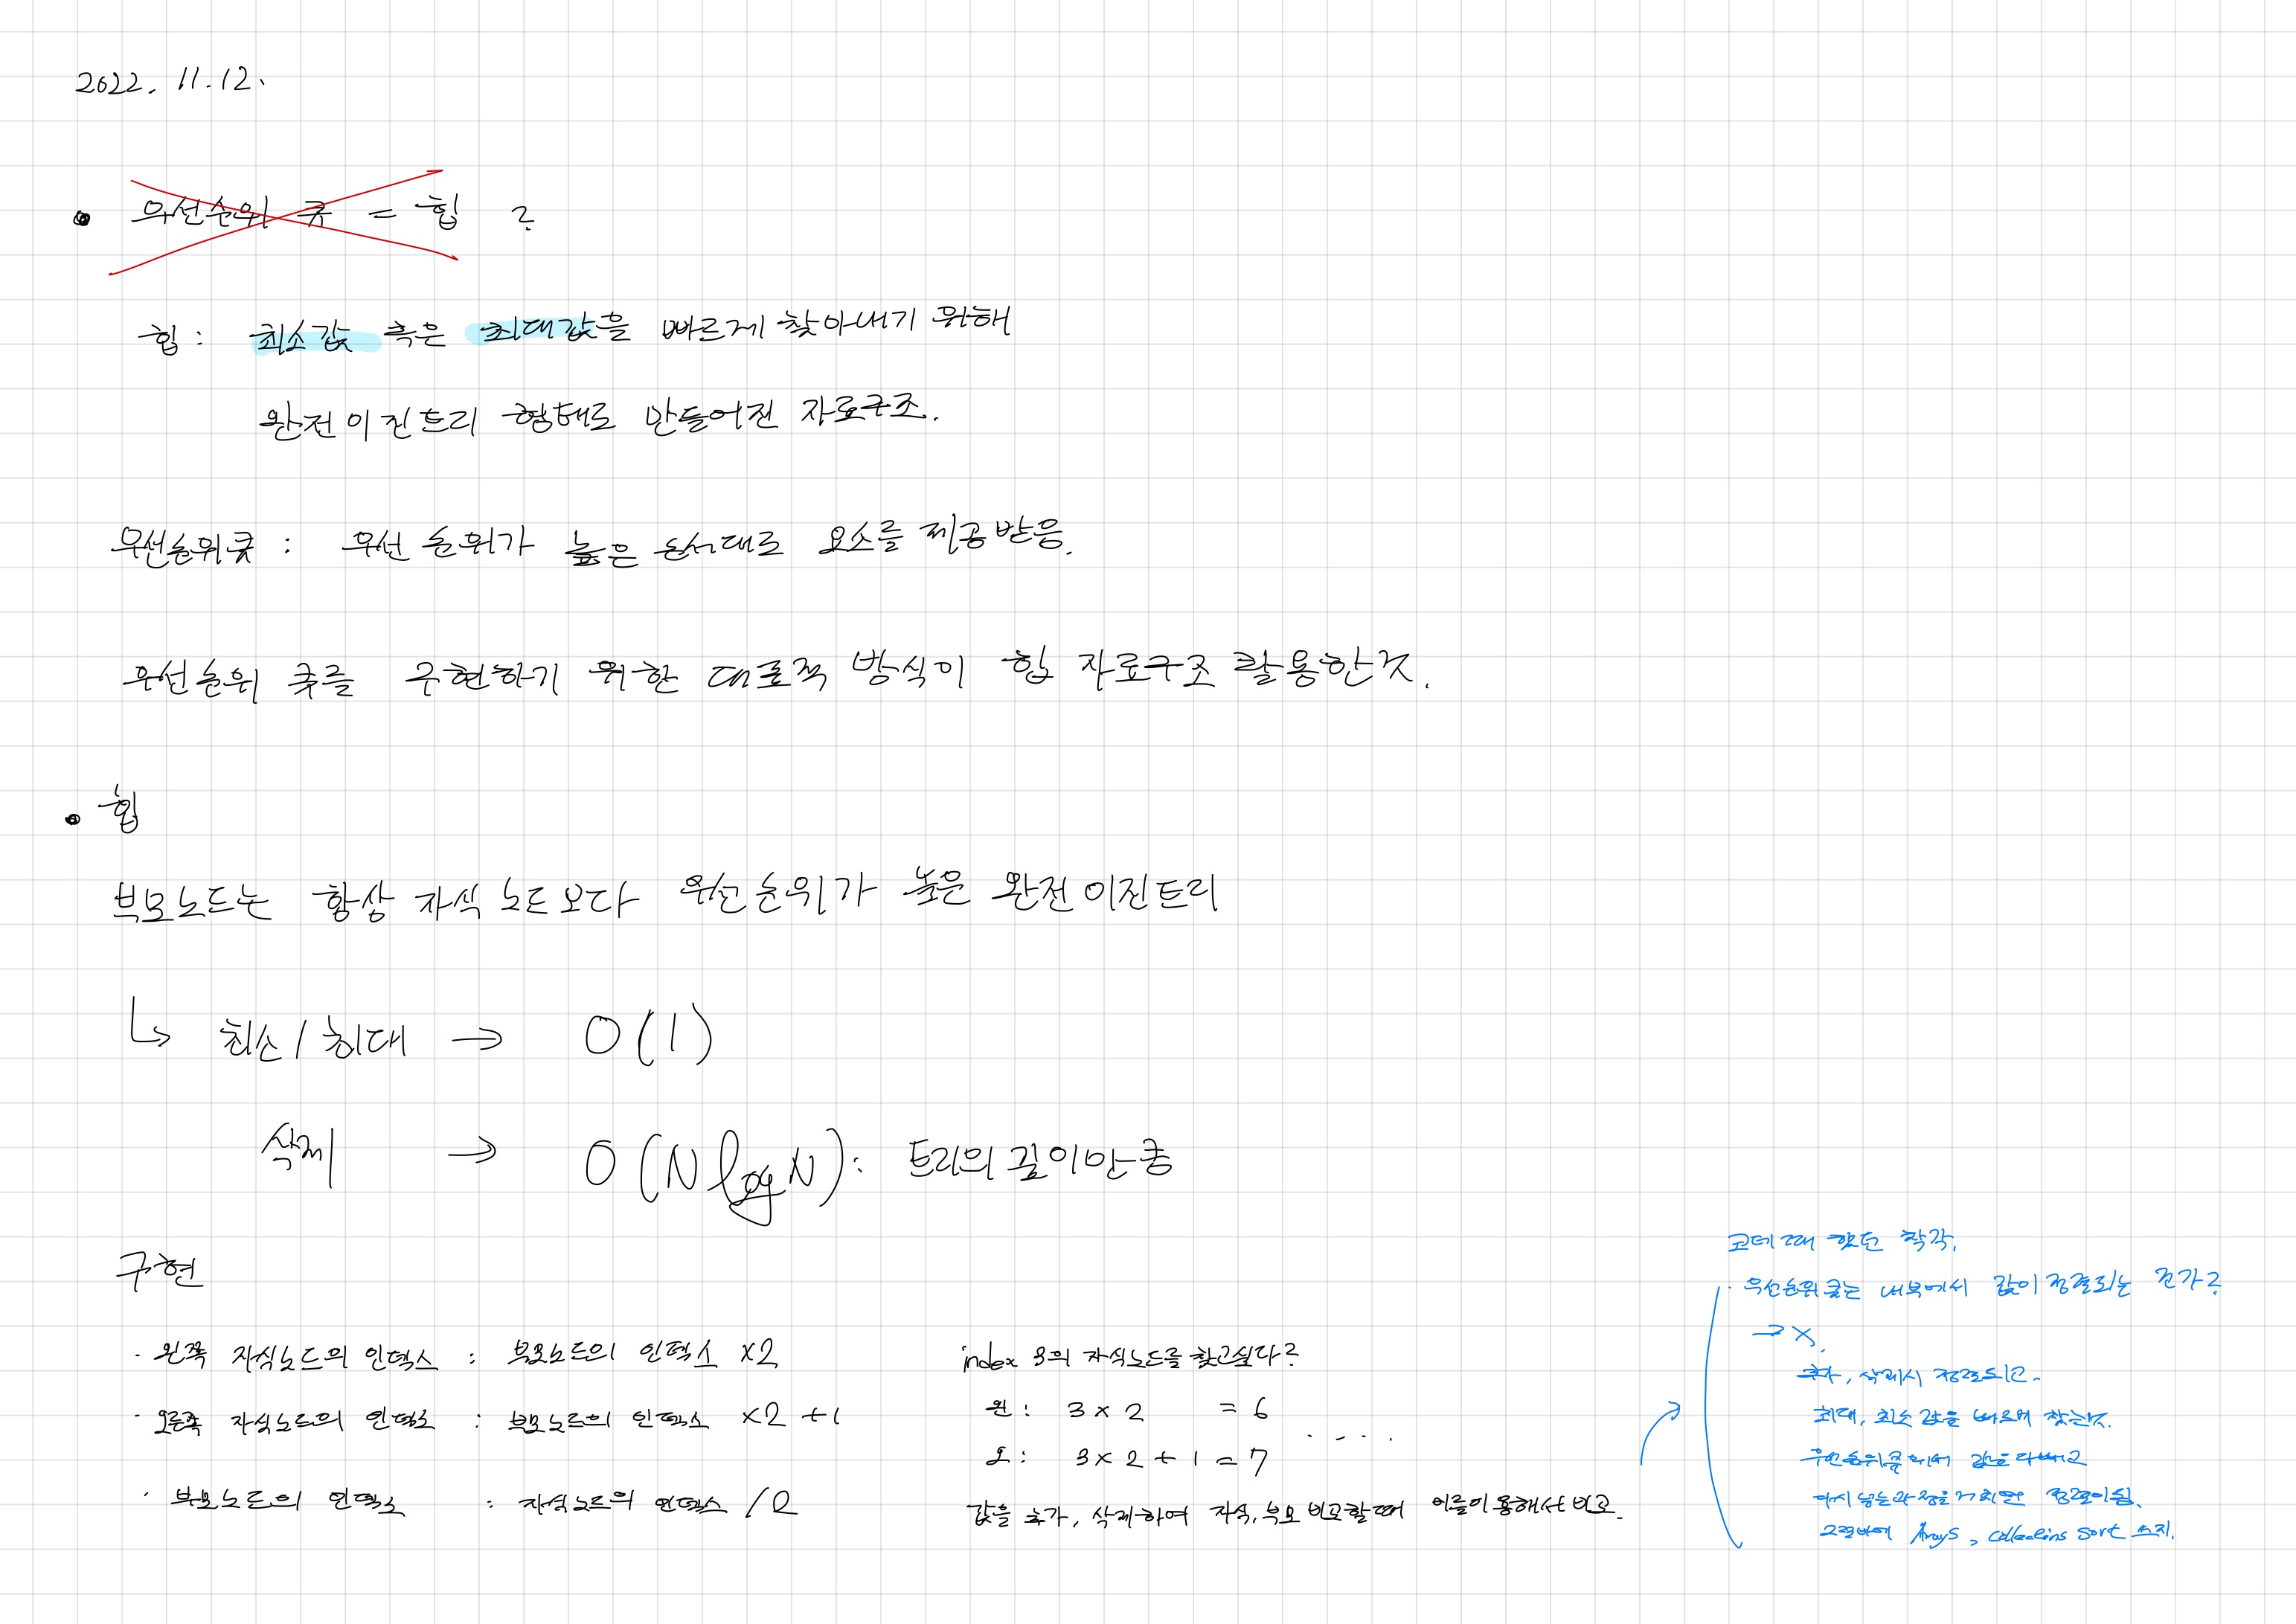 2022. 11. 12.
우선순위 큐 = 힙 ?
힙 : 최소값 혹은 최대값을 빠르게 찾아내기 위해
완전이진트리 형태로 만들어진 자료구조.
우선순위큐 : 우선 순위가 높은 순서대로 요소를 제공받음.
우선순위 큐를 구현하기 위한 대표적 방식이 힙 자료구조 활용한것.
힙
부모노드는 항상 자식 노드보다 우선순위가 높은 완전이진트리
↳ 최소/최대 → O(1)
삭제 → O(NlogN) : 트리의 깊이만큼
구현
· 왼쪽 자식노드의 인덱스 : 부모노드의 인덱스 x2
· 오른쪽 자식노드의 인덱스 : 부모노드의 인덱스 x2 +1
· 부모노드의 인덱스 : 자식노드의 인덱스 /2
index 3의 자식노드를 찾고싶다?
왼 : 3 x 2 = 6
오 : 3 x 2 + 1 = 7 ....
값을 추가, 삭제하여 자식, 부모 비교할때 이를 이용해서 비교.
코테 때 했던 착각.
· 우선순위큐는 내부에서 값이 정렬되는 건가?
→ X.
추가, 삭제시 정렬되고.
최대, 최소 값을 빠르게 찾는것.
우선순위큐에서 값을 다빼고
다시 넣는과정을 거치면 정렬이됨.
그럴바에 Arrays, Collections sort 쓰지.